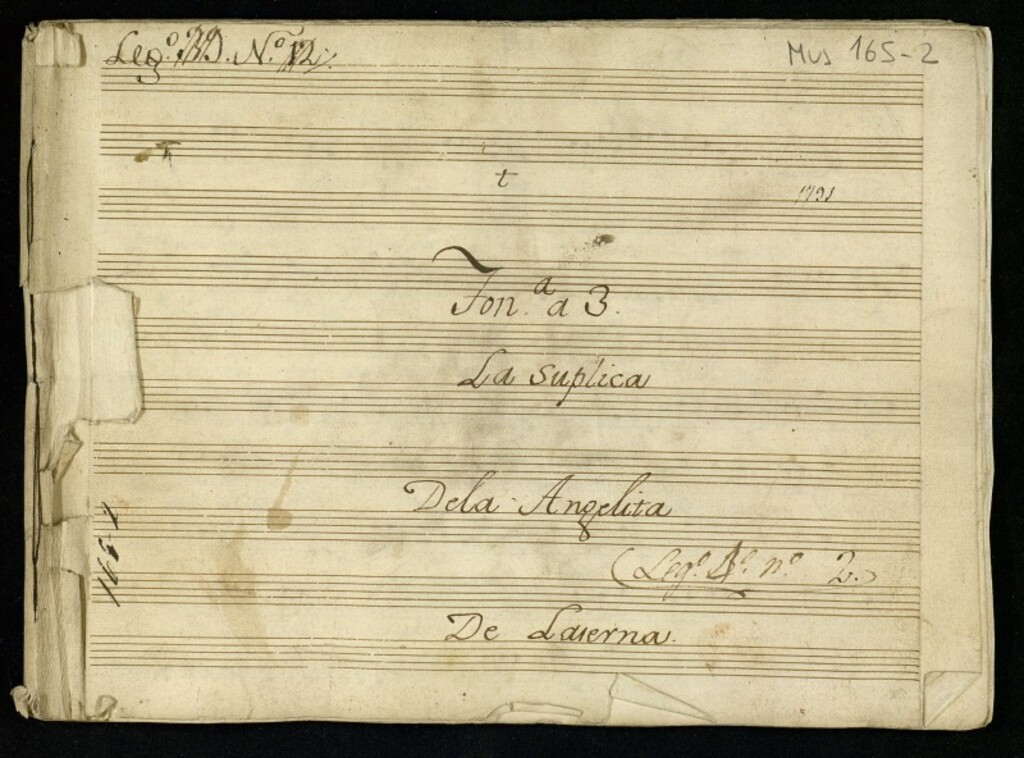 Leg.º N.º 12
Mus 165-2
t
1791
Ton.a a 3.
La suplica
Dela Angelita
(Leg.º 4.º n.º 2.)
165-2
De Laserna.